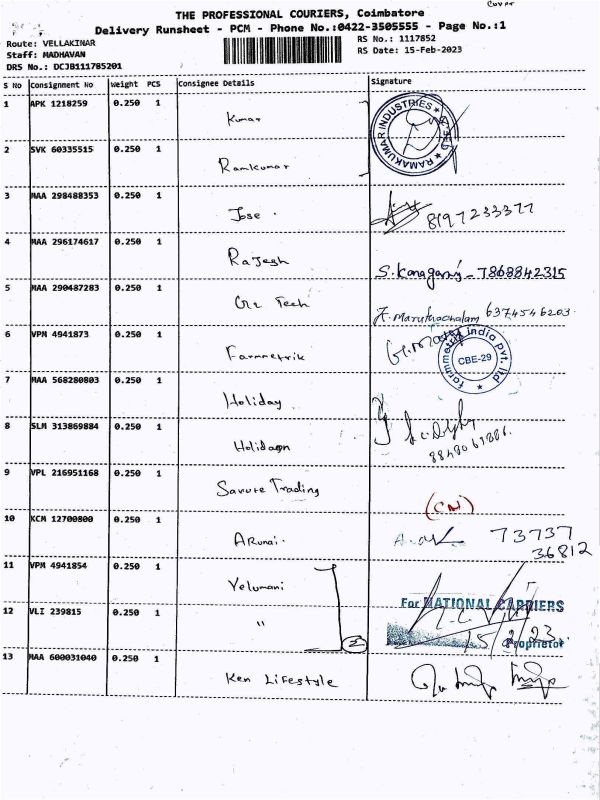 THE PROFESSIONAL COURIERS, Coimbatore
Delivery Runsheet - PCM - Phone No.:0422-3505555 - Page No.:1
Route: VELLAKINAR
RS No.: 1117852
Staff: MADHAVAN
RS Date: 15-Feb-2023
DRS No.: DCJB111785201
S No Consignment No Weight PCS Consignee Details Signature
1 APK 1218259 0.250 1 Kumar
RAMAKUMAR INDUSTRIES
2 SVK 60335515 0.250 1 Ramkumar
3 MAA 298488353 0.250 1 Jose. 8197233377
4 MAA 296174617 0.250 1 Rajesh S. Kanagaraj - 7868842315
5 MAA 290487283 0.250 1 Tech F. Maruthachalam 6374546203.
6 VPM 4941873 0.250 1 Farmmetrik
farmmetrik india pvt. ltd
CBE-29
7 MAA 568280803 0.250 1 Holiday
8 SLM 313869884 0.250 1 Holidaon
9 VPL 216951168 0.250 1 Savute Trading (CN)
10 KCM 12700800 0.250 1 Arunai. 73737
36812
11 VPM 4941854 0.250 1 Velumani
For NATIONAL CARRIERS
12 VLI 239815 0.250 1 " 2
15/2/23.
Proprietor
13 MAA 600031040 0.250 1 Ken Lifestyle